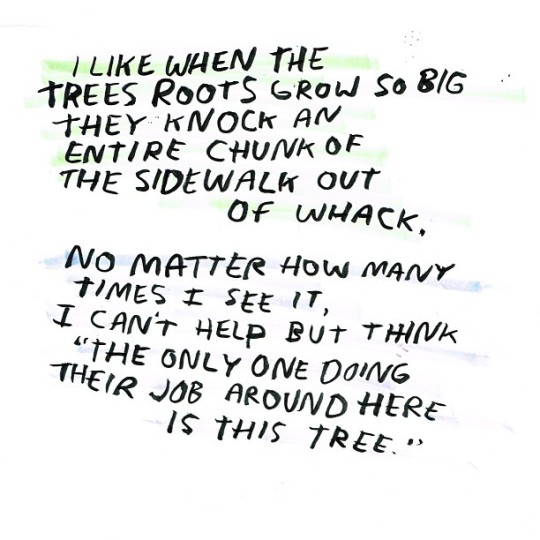 I LIKE WHEN THE
TREES ROOTS GROW SO BIG
THEY KNOCK AN
ENTIRE CHUNK OF
THE SIDEWALK OUT
OF WHACK.
NO MATTER HOW MANY
TIMES I SEE IT,
I CAN'T HELP BUT THINK
"THE ONLY ONE DOING
THEIR JOB AROUND HERE
IS THIS TREE."